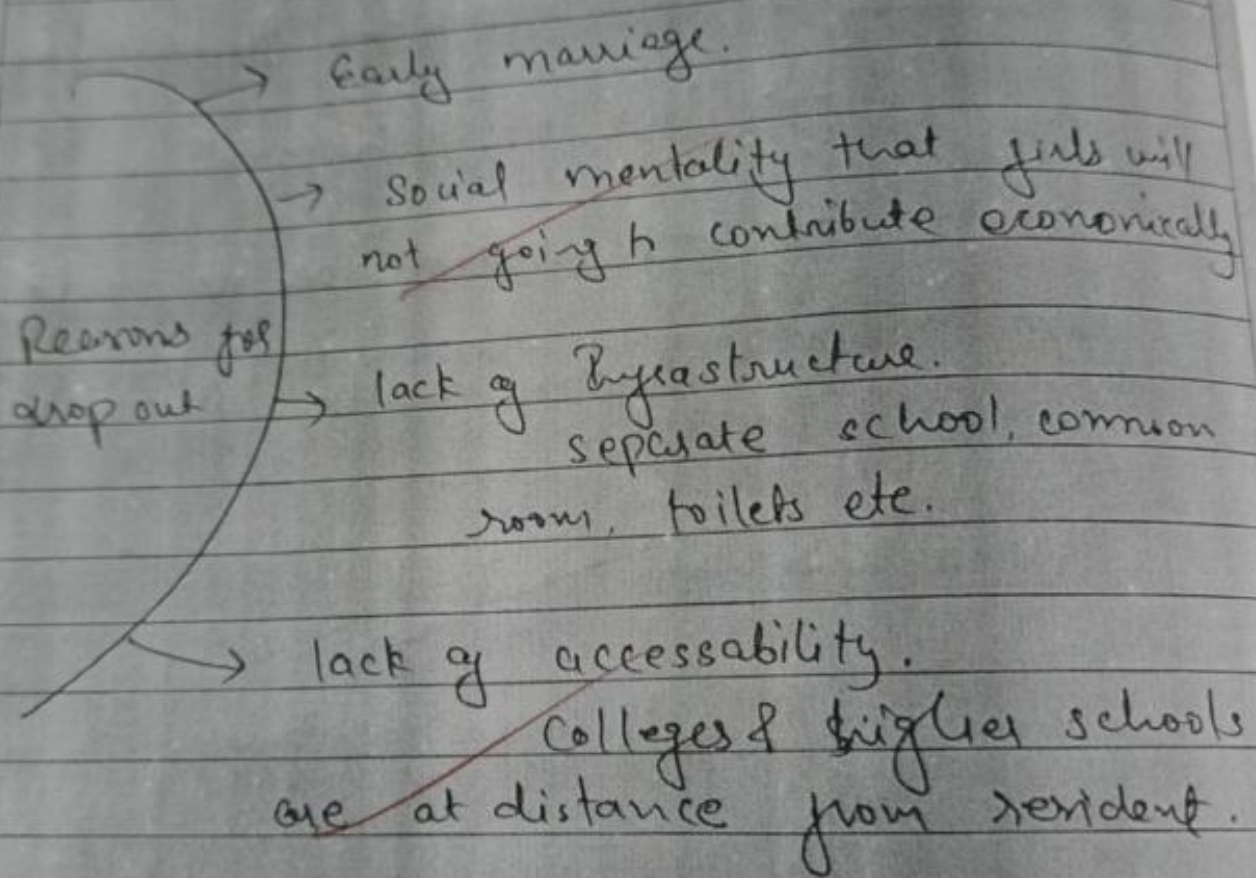 → Early marriage.
→ Social mentality that girls will
not going to contribute economically
Reasons for
drop out
→ lack of Infrastructure.
separate school, common
room, toilets etc.
→ lack of accessability.
Colleges & higher schools
are at distance from resident.